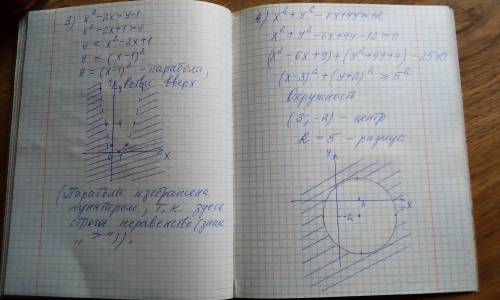 3) x² - 2x > y - 1
x² - 2x + 1 > y
y < x² - 2x + 1
y < (x - 1)²
y = (x - 1)² - парабола,
ветви вверх
y
4
1
x
(Парабола изображена
пунктиром, т.к. здесь
строгое неравенство (знак
">")).
4) x² + y² - 6x + 4y ≥ 12
x² + y² - 6x + 4y - 12 ≥ 0
(x² - 6x + 9) + (y² + 4y + 4) - 25 ≥ 0
(x - 3)² + (y + 2)² ≥ 5²
Окружность
(3; -2) - центр
R = 5 - радиус
y
3
x
-2